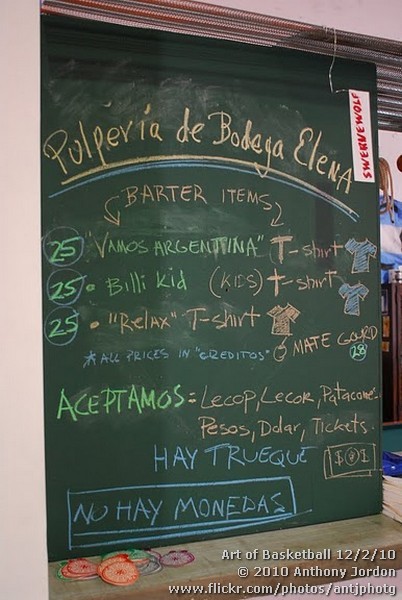 Pulpería de Bodega ElenA
SWERVEWOLF
BARTER ITEMS
25 "VAMOS ARGENTINA" T-shirt
25 • Billi kid (KIDS) t-shirt
25 • "Relax" T-shirt
MATE GOURD
28
*ALL PRICES IN "CREDITOS"
ACEPTAMOS: Lecop, Lecor, Patacones
Pesos, Dolar, Tickets.
HAY TRUEQUE
NO HAY MONEDAS
Art of Basketball 12/2/10
© 2010 Anthony Jordon
www.flickr.com/photos/antjphotg